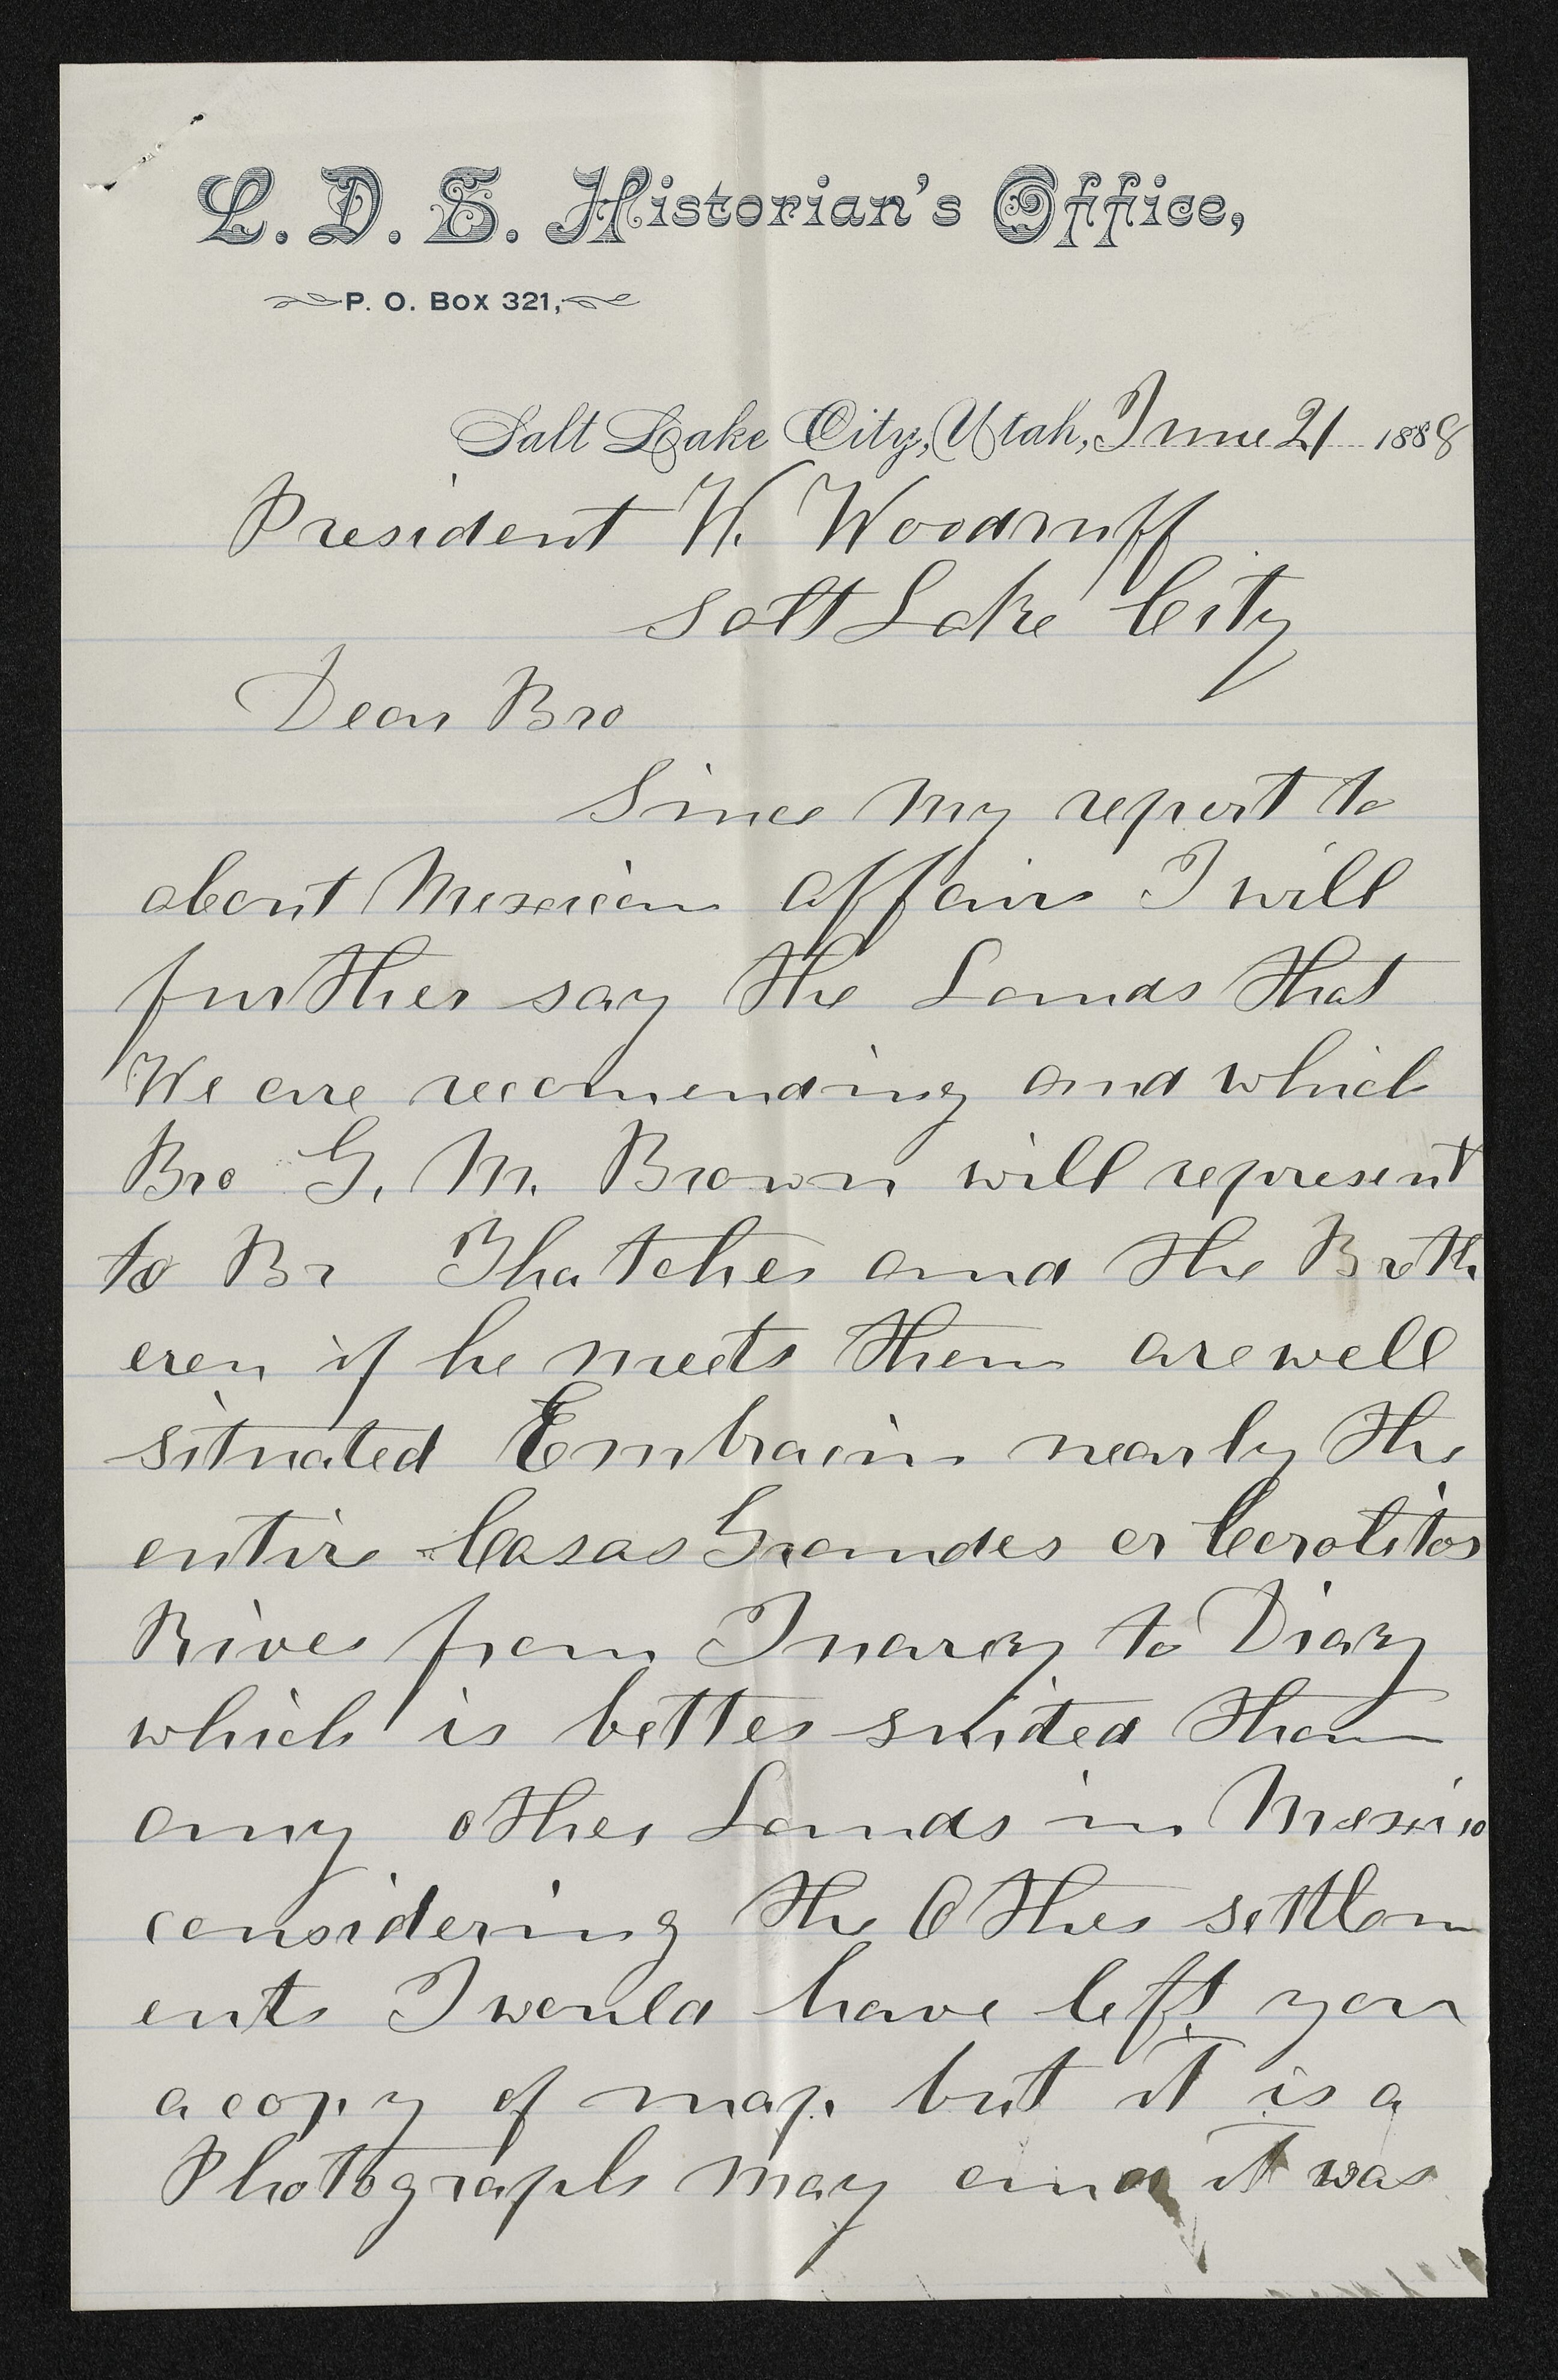 L. D. S. Historian's Office,
P. O. Box 321,
Salt Lake City, Utah, June 21 1888
President W. Woodruff
Salt Lake City
Dear Bro
Since my report to
about Mexican affairs I will
further say the Lands that
We are recomending and which
Bro G. M. Brown will represent
to Br Thatcher and the Broth
eren if he meets them are well
situated Embracin nearly the
entire Casas Grandes or Corolitos
River from Juarez to Diaz
which is better suited than
any other Lands in Mexico
considering the Other settlem
ents I would have left you
a copy of map. but it is a
Photograph may and it was